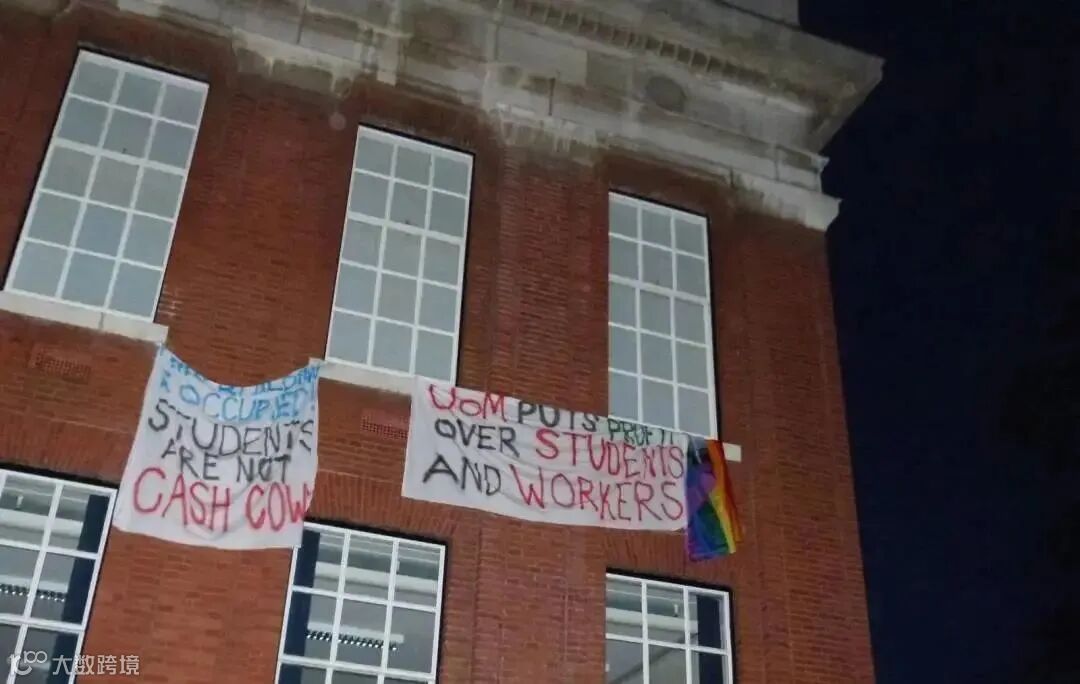 OCCUPIED!
STUDENTS
ARE NOT
CASH COW
UOM PUTS PROFIT
OVER STUDENTS
AND WORKERS
大数跨境